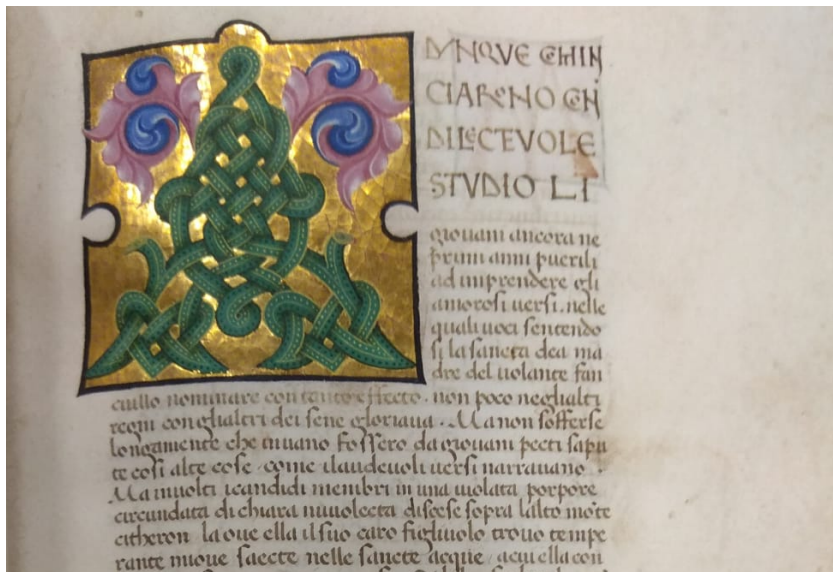 A
DVNQVE CHOMIN
CIARONO CON
DILECTEVOLE
STVDIO LI
giouani ancora ne
primi anni puerili
ad imprendere gli
amorosi uersi. nelle
quali uoci sentendo
si la sancta dea ma
dre del uolante fan
ciullo nominare con tanto effecto. non poco neglialti
regni con glialtri dei sene gloriaua. Ma non sofferse
longamente che inuano fossero da giouani pecti sapu
te cosi alte cose. come ilaudeuoli uersi narrauano.
Ma inuolti icandidi membri in una uiolata porpore
circundata di chiara nuuolecta discese sopra lalto mōte
citheron. la oue ella il suo caro figliuolo trouo tempe
rante nuoue saecte nelle sancte acque. acui ella con